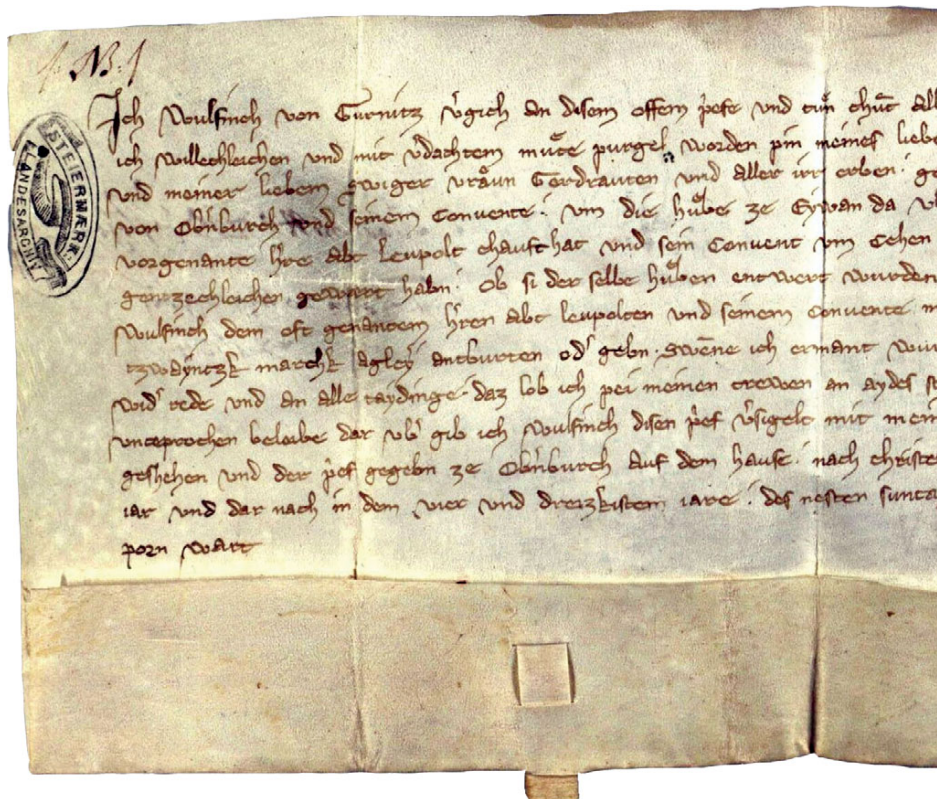 NB.
STEIERMÆRK. LANDESARCHIV
Ich Wulfinch von Gurnitz v̓gich an disem offem p̓efe und tuͤn chuͤt all
ich willechleichen und mit v̓dachtem muͤte purgel worden pin meines liebe
und meiner liebem swiger vraͤun Gerdrauten und aller irr erben. ge
von Obn̓burch und seinem Convente. um die huͤbe ze Eywan da
vorgenante h̓re abt Leupolt chauft hat und sein Convent um Cehen
gentzechleichen gewert habn. Ob si der selbe huͤben entwert wurden
Wulfinch dem oft genantem h̓ren abt leupolten und seinem Convente
tzwaͤyntzk marchk agleÿ antburten od̓ gebn. Swēne ich ermant wur
wid̓ rede und an alle taydinge. daz lob ich pei meinen trewen an aydes
unceprochen beleibe dar vb̓ gib ich Wulfinch disen p̓ef v̓sigelt mit mein
geshehen und der p̓ef gegebn ze Obn̓burch auf dem hause. nach christe
iar und dar nach in dem vier und dreizkistem iare. des nesten sunta
porn wart